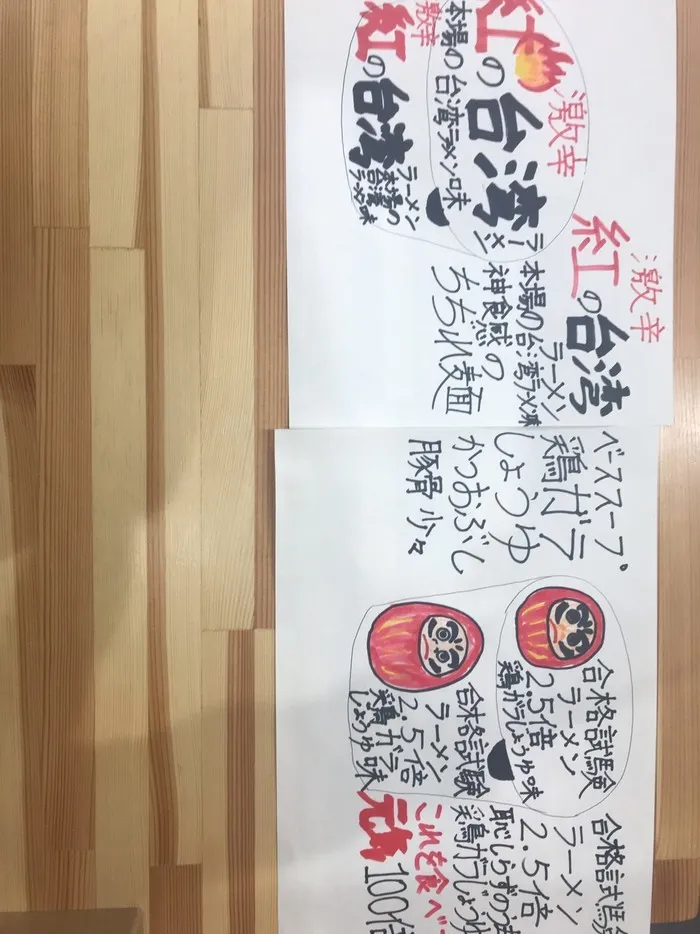 激辛
紅の台湾
ラーメン
本場の台湾ラーメン味
激辛
紅の台湾
ラーメン
本場の
台湾
ラーメン味
激辛
紅の台湾
ラーメン
本場の台湾ラーメン味
神食感の
ちぢれ麺
ベーススープ
鶏ガラ
しょうゆ
かつおぶし
豚骨 少々
合格試験
ラーメン
2.5倍
鶏ガラしょうゆ味
合格試験
ラーメン
2.5倍
鶏ガラ
しょうゆ味
合格試験
ラーメン
2.5倍
恥しらずの
鶏ガラしょうゆ
これを食べ
元気100倍